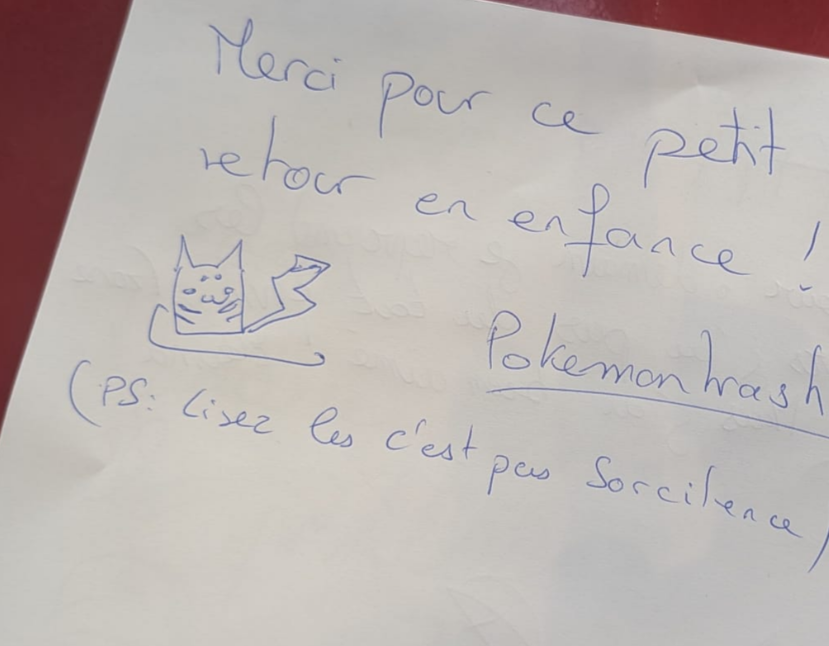 Merci pour ce petit
retour en enfance !
Pokemontrash
(PS: Lisez les c'est pas Sorcilence